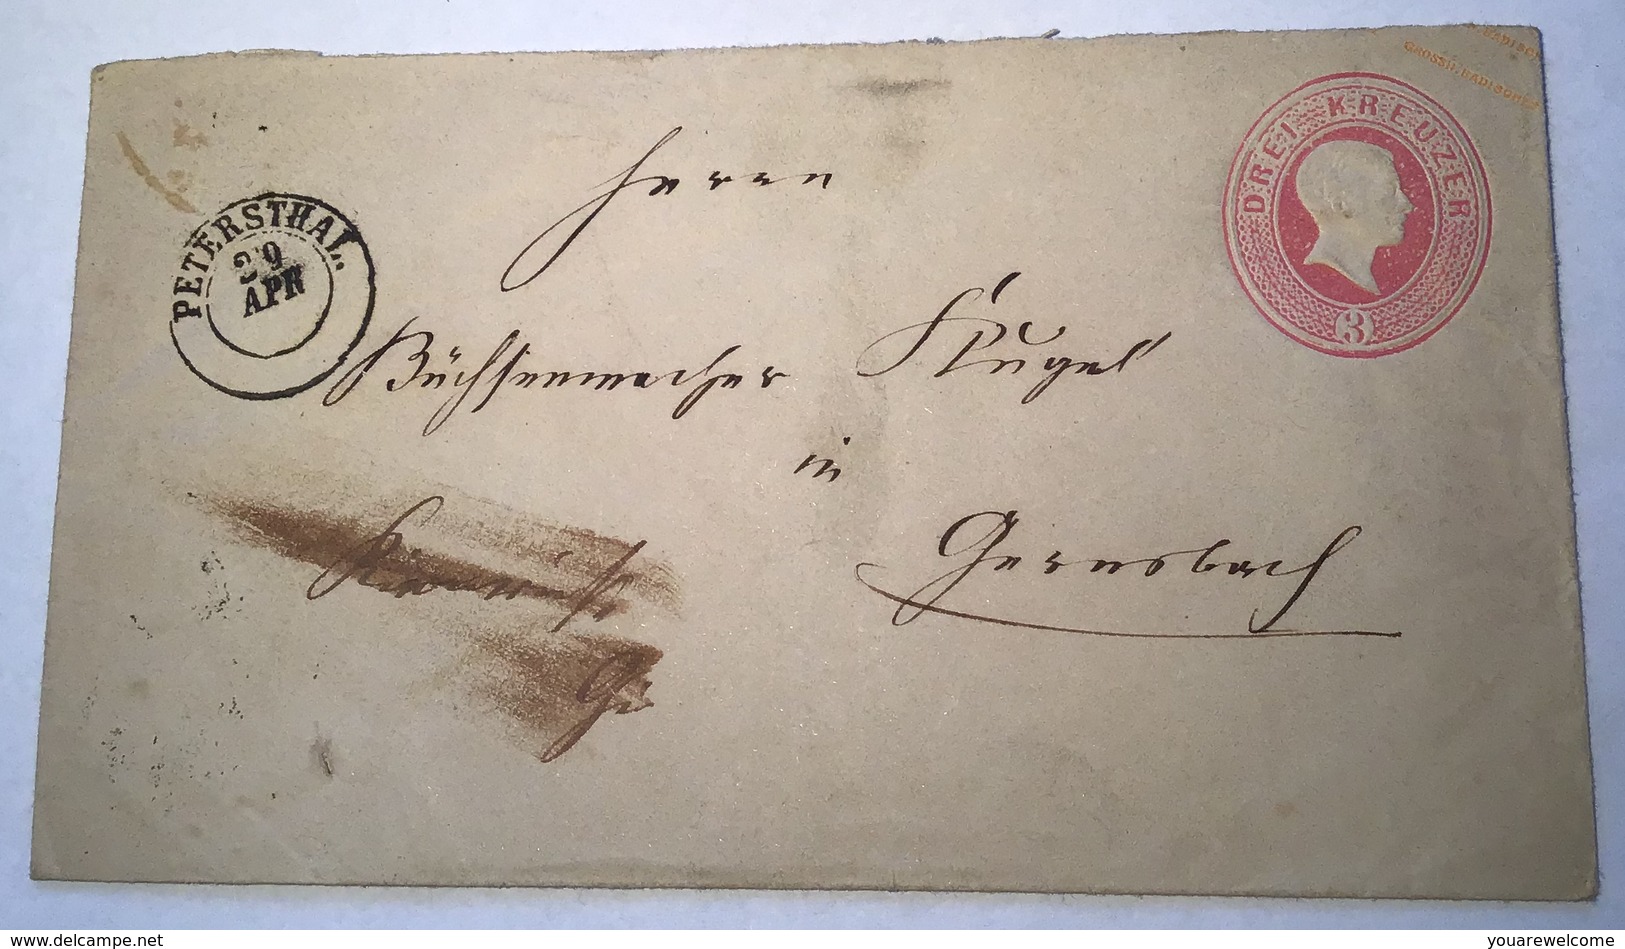 BADISCH
GROSSH. BADISCHES
DREI KREUZER
3
PETERSTHAL.
29
APR
Herrn
Büchsenmacher Kugel
in
Gernsbach
delcampe.net
youarewelcome